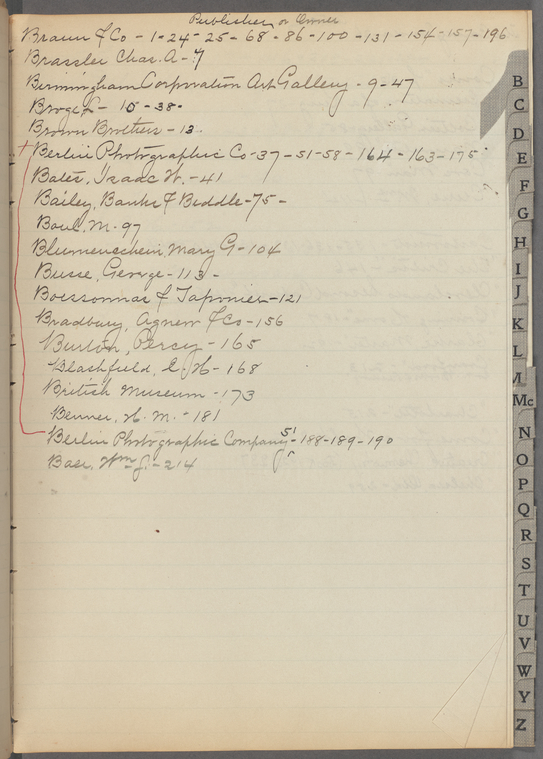 Publisher or Owner
Braun & Co - 1-24-25-68-86-100-131-154-157-196
Brassler Chas. A - 4
Birmingham Corporation Art Gallery - 9-47
Brogi - 10-38-
Brown Brothers - 13
Berlin Photographic Co-37-51-58-164-163-175
Bates, Isaac W. - 41
Bailey, Banks & Biddle-75-
M. - 97
Blumenschein, Mary G-104
Busse, George-113-
Boissonnas & Taponier-121
Bradbury, Agnew & Co-156
Burton, Percy - 165
Blashfield, E. H- 168
British Museum - 173
Benner, H. M. - 181
Berlin Photographic Company-51-188-189-190
Base, Wm J. - 214
B
C
D
E
F
G
H
I
J
K
L
M
Mc
N
O
P
Q
R
S
T
U
V
W
Y
Z